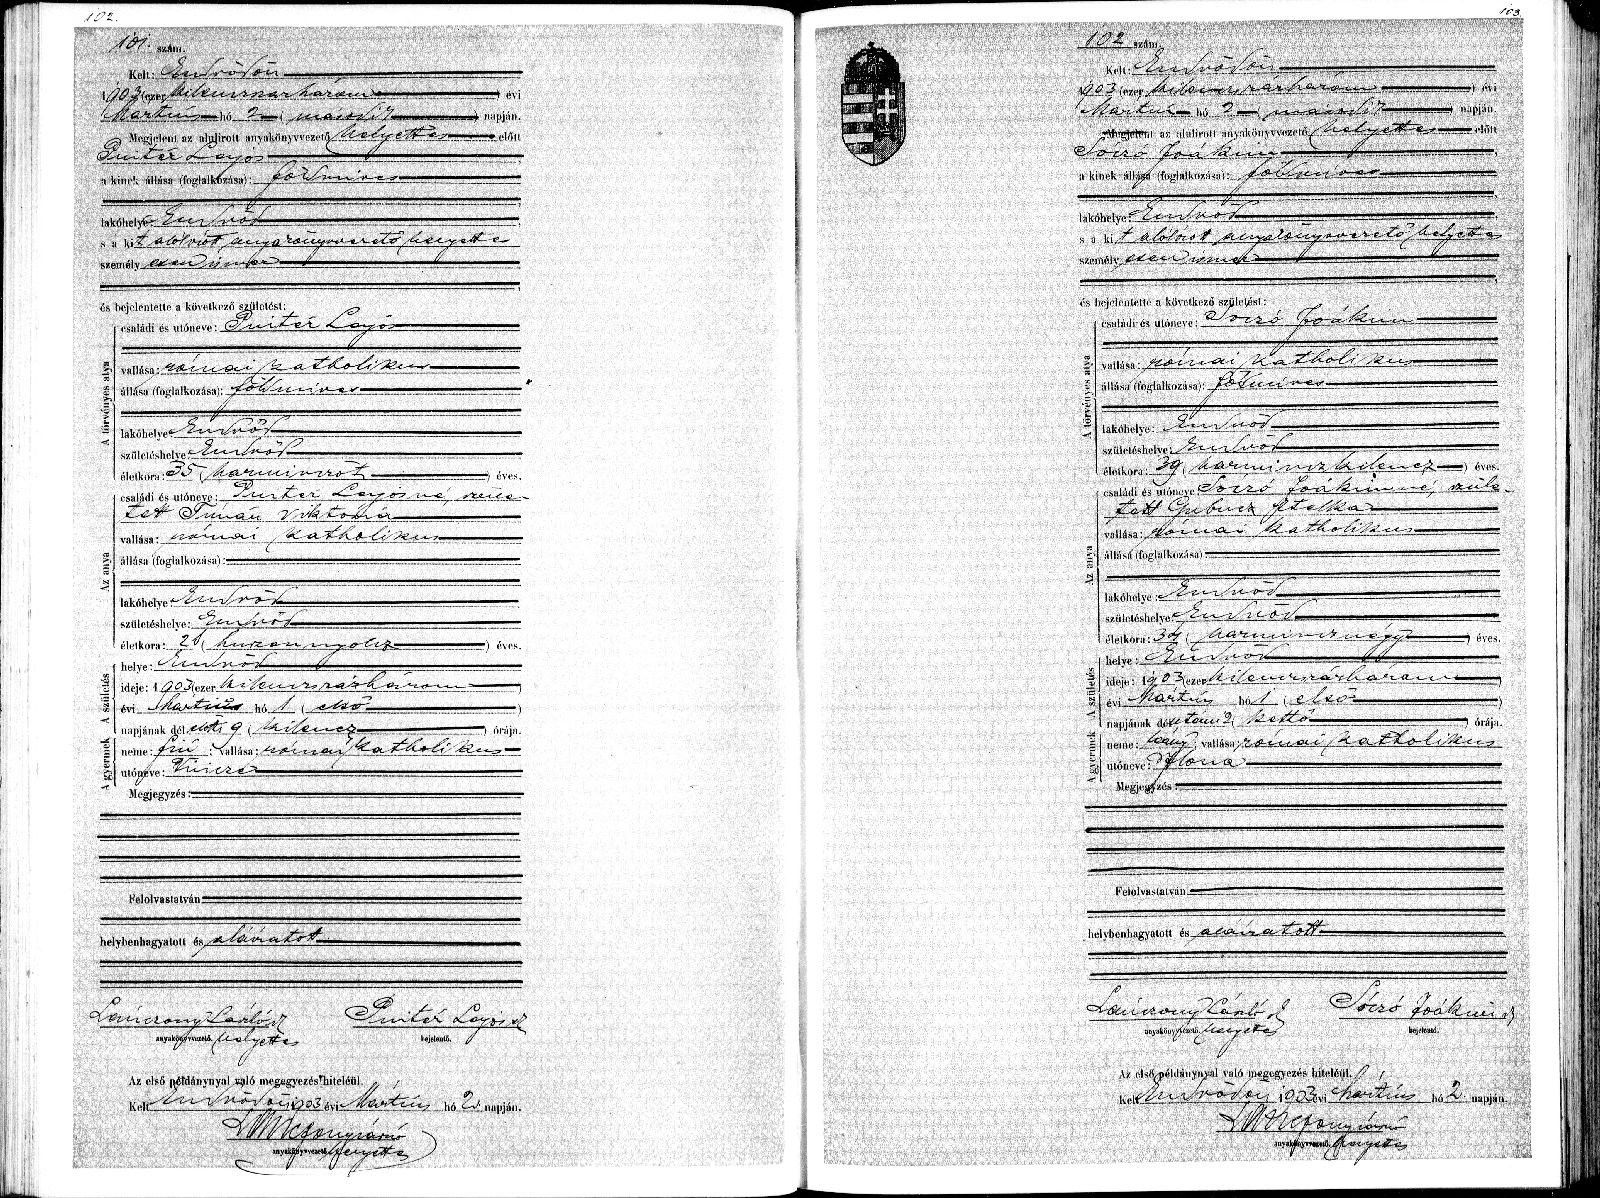 102.
101. szám.
Kelt: Endrődön
1903 (ezer kilenczszázhárom) évi
Martius hó 2 (második) napján.
Megjelent az alulirott anyakönyvvezető helyettes előtt
Pintér Lajos
a kinek állása (foglalkozása): földmives
lakóhelye Endrőd
s a kit alólirott anyakönyvvezető helyettes
személyesen ismer
és bejelentette a következő születést:
A törvényes atya
családi és utóneve: Pintér Lajos
vallása: római katholikus
állása (foglalkozása): földmives
lakóhelye Endrőd
születéshelye Endrőd
életkora: 35 (harminczöt) éves.
Az anya
családi és utóneve: Pintér Lajosné, szüle-
tett Tímár Viktoria
vallása: római katholikus
állása (foglalkozása):
lakóhelye Endrőd
születéshelye: Endrőd
életkora: 28 (huszonnyolcz) éves.
A születés
helye: Endrőd
ideje: 1903 (ezer kilenczszázhárom)
évi Martius hó 1 (első)
napjának dél előtti 9 (kilencz) órája.
A gyermek
neme: fiú; vallása: római katholikus
utóneve: Vincze
Megjegyzés:
Felolvastatván
helybenhagyatott és aláiratott
László Pintér Lajos
anyakönyvvezető helyettes bejelentő.
Az első példánynyal való megegyezés hiteléül.
Kelt Endrődön 1903 évi Martius hó 2 napján.
anyakönyvvezető helyettes
103
102 szám.
Kelt: Endrődön
1903 (ezer kilenczszázhárom) évi
Martius hó 2 (második) napján.
Megjelent az alulirott anyakönyvvezető helyettes előtt
Sóczó Joákim
a kinek állása (foglalkozása): földmives
lakóhelye: Endrőd
s a kit alólirott anyakönyvvezető helyettes
személyesen ismer
és bejelentette a következő születést:
A törvényes atya
családi és utóneve: Sóczó Joákim
vallása: római katholikus
állása (foglalkozása): földmives
lakóhelye: Endrőd
születéshelye: Endrőd
életkora: 39 (harminczkilencz) éves.
Az anya
családi és utóneve Sóczó Joákimné, szüle-
tett Gubucz Etelka
vallása: római katholikus
állása (foglalkozása)
lakóhelye: Endrőd
születéshelye: Endrőd
életkora: 34 (harmincznégy) éves.
A születés
helye: Endrőd
ideje: 1903 (ezer kilenczszázhárom)
évi Martius hó 1 (első)
napjának délutáni 2 (kettő) órája.
A gyermek
neme: leány; vallása: római katholikus
utóneve: Ilona
Megjegyzés:
Felolvastatván
helybenhagyatott és aláiratott
László Sóczó Joákim
anyakönyvvezető helyettes bejelentő.
Az első példánynyal való megegyezés hiteléül.
Kelt Endrődön 1903 évi Martius hó 2 napján.
anyakönyvvezető helyettes